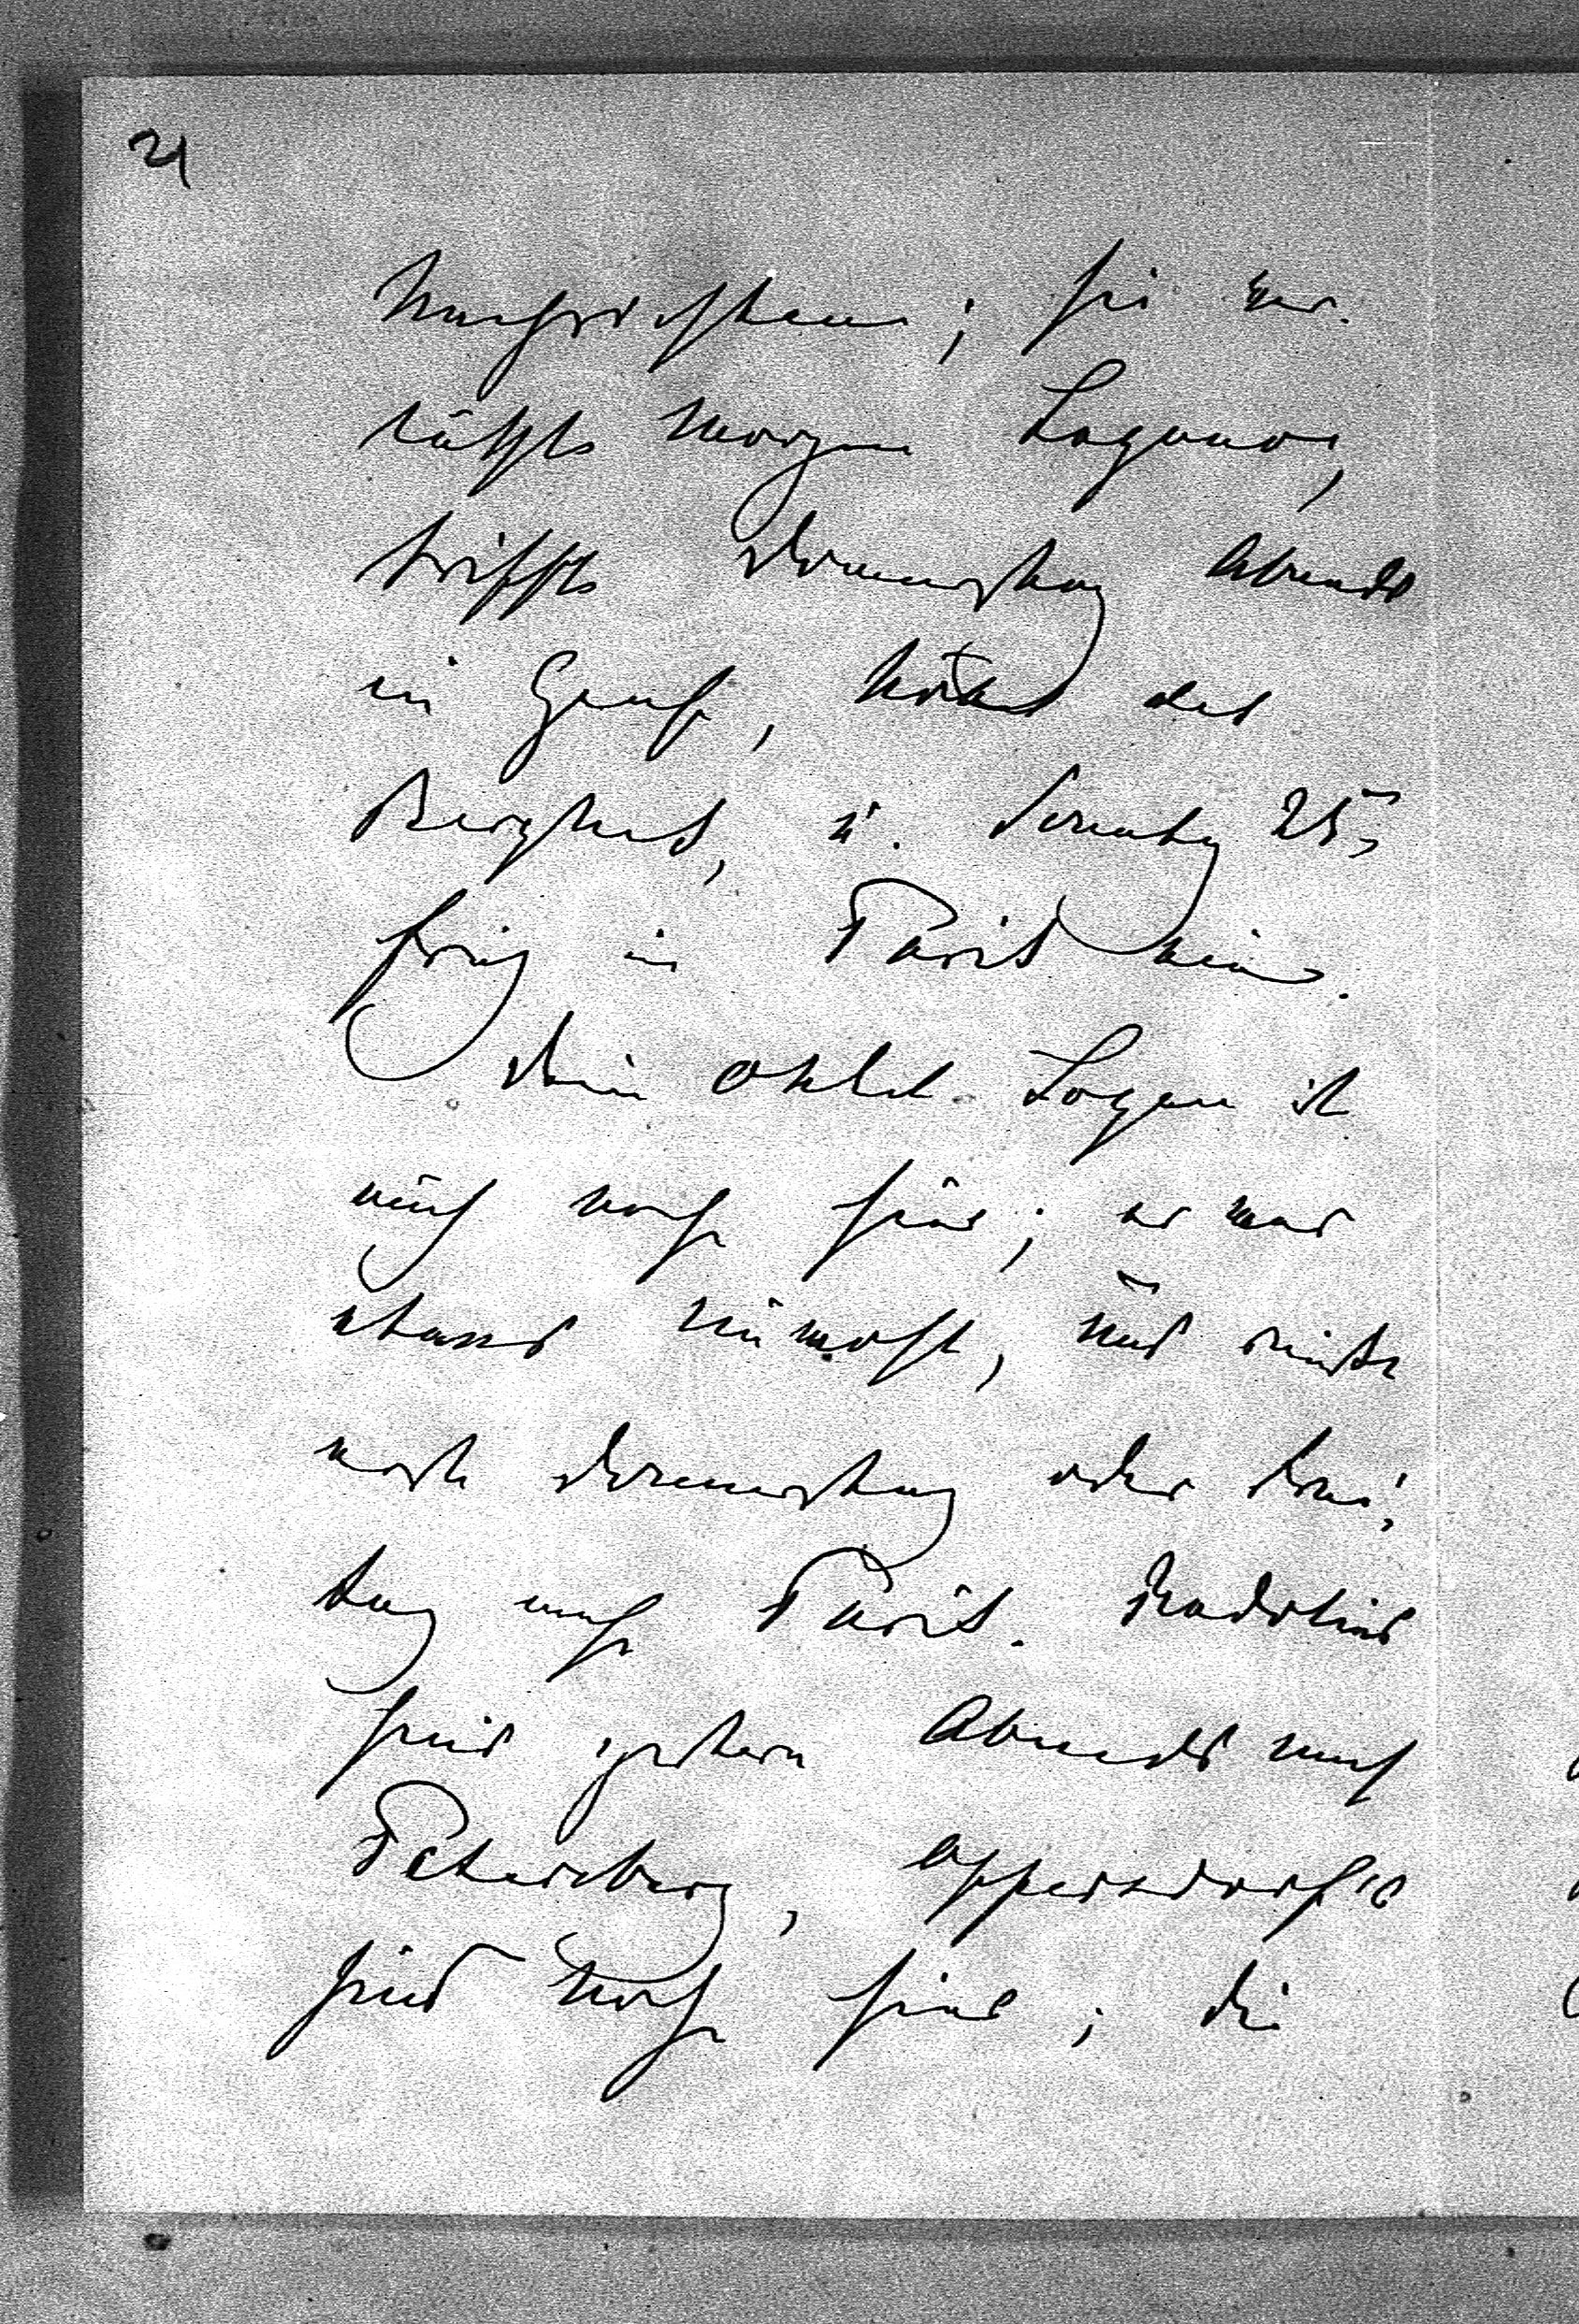 21
Nachrichten; sie ver-
läßt morgen Lugano,
trifft Donnerstag Abends
in Genf, Hôtel des
Bergues, u. Sonntag 25,
früh in Paris ein.
Dein Onkel Logan ist
auch noch hier; er war
etwas unwohl, und reist
erst Donnerstag oder Frei-
tag nach Paris. Radolins
sind gestern Abends nach
Petersburg, Oppersdorffs
sind noch hier; die